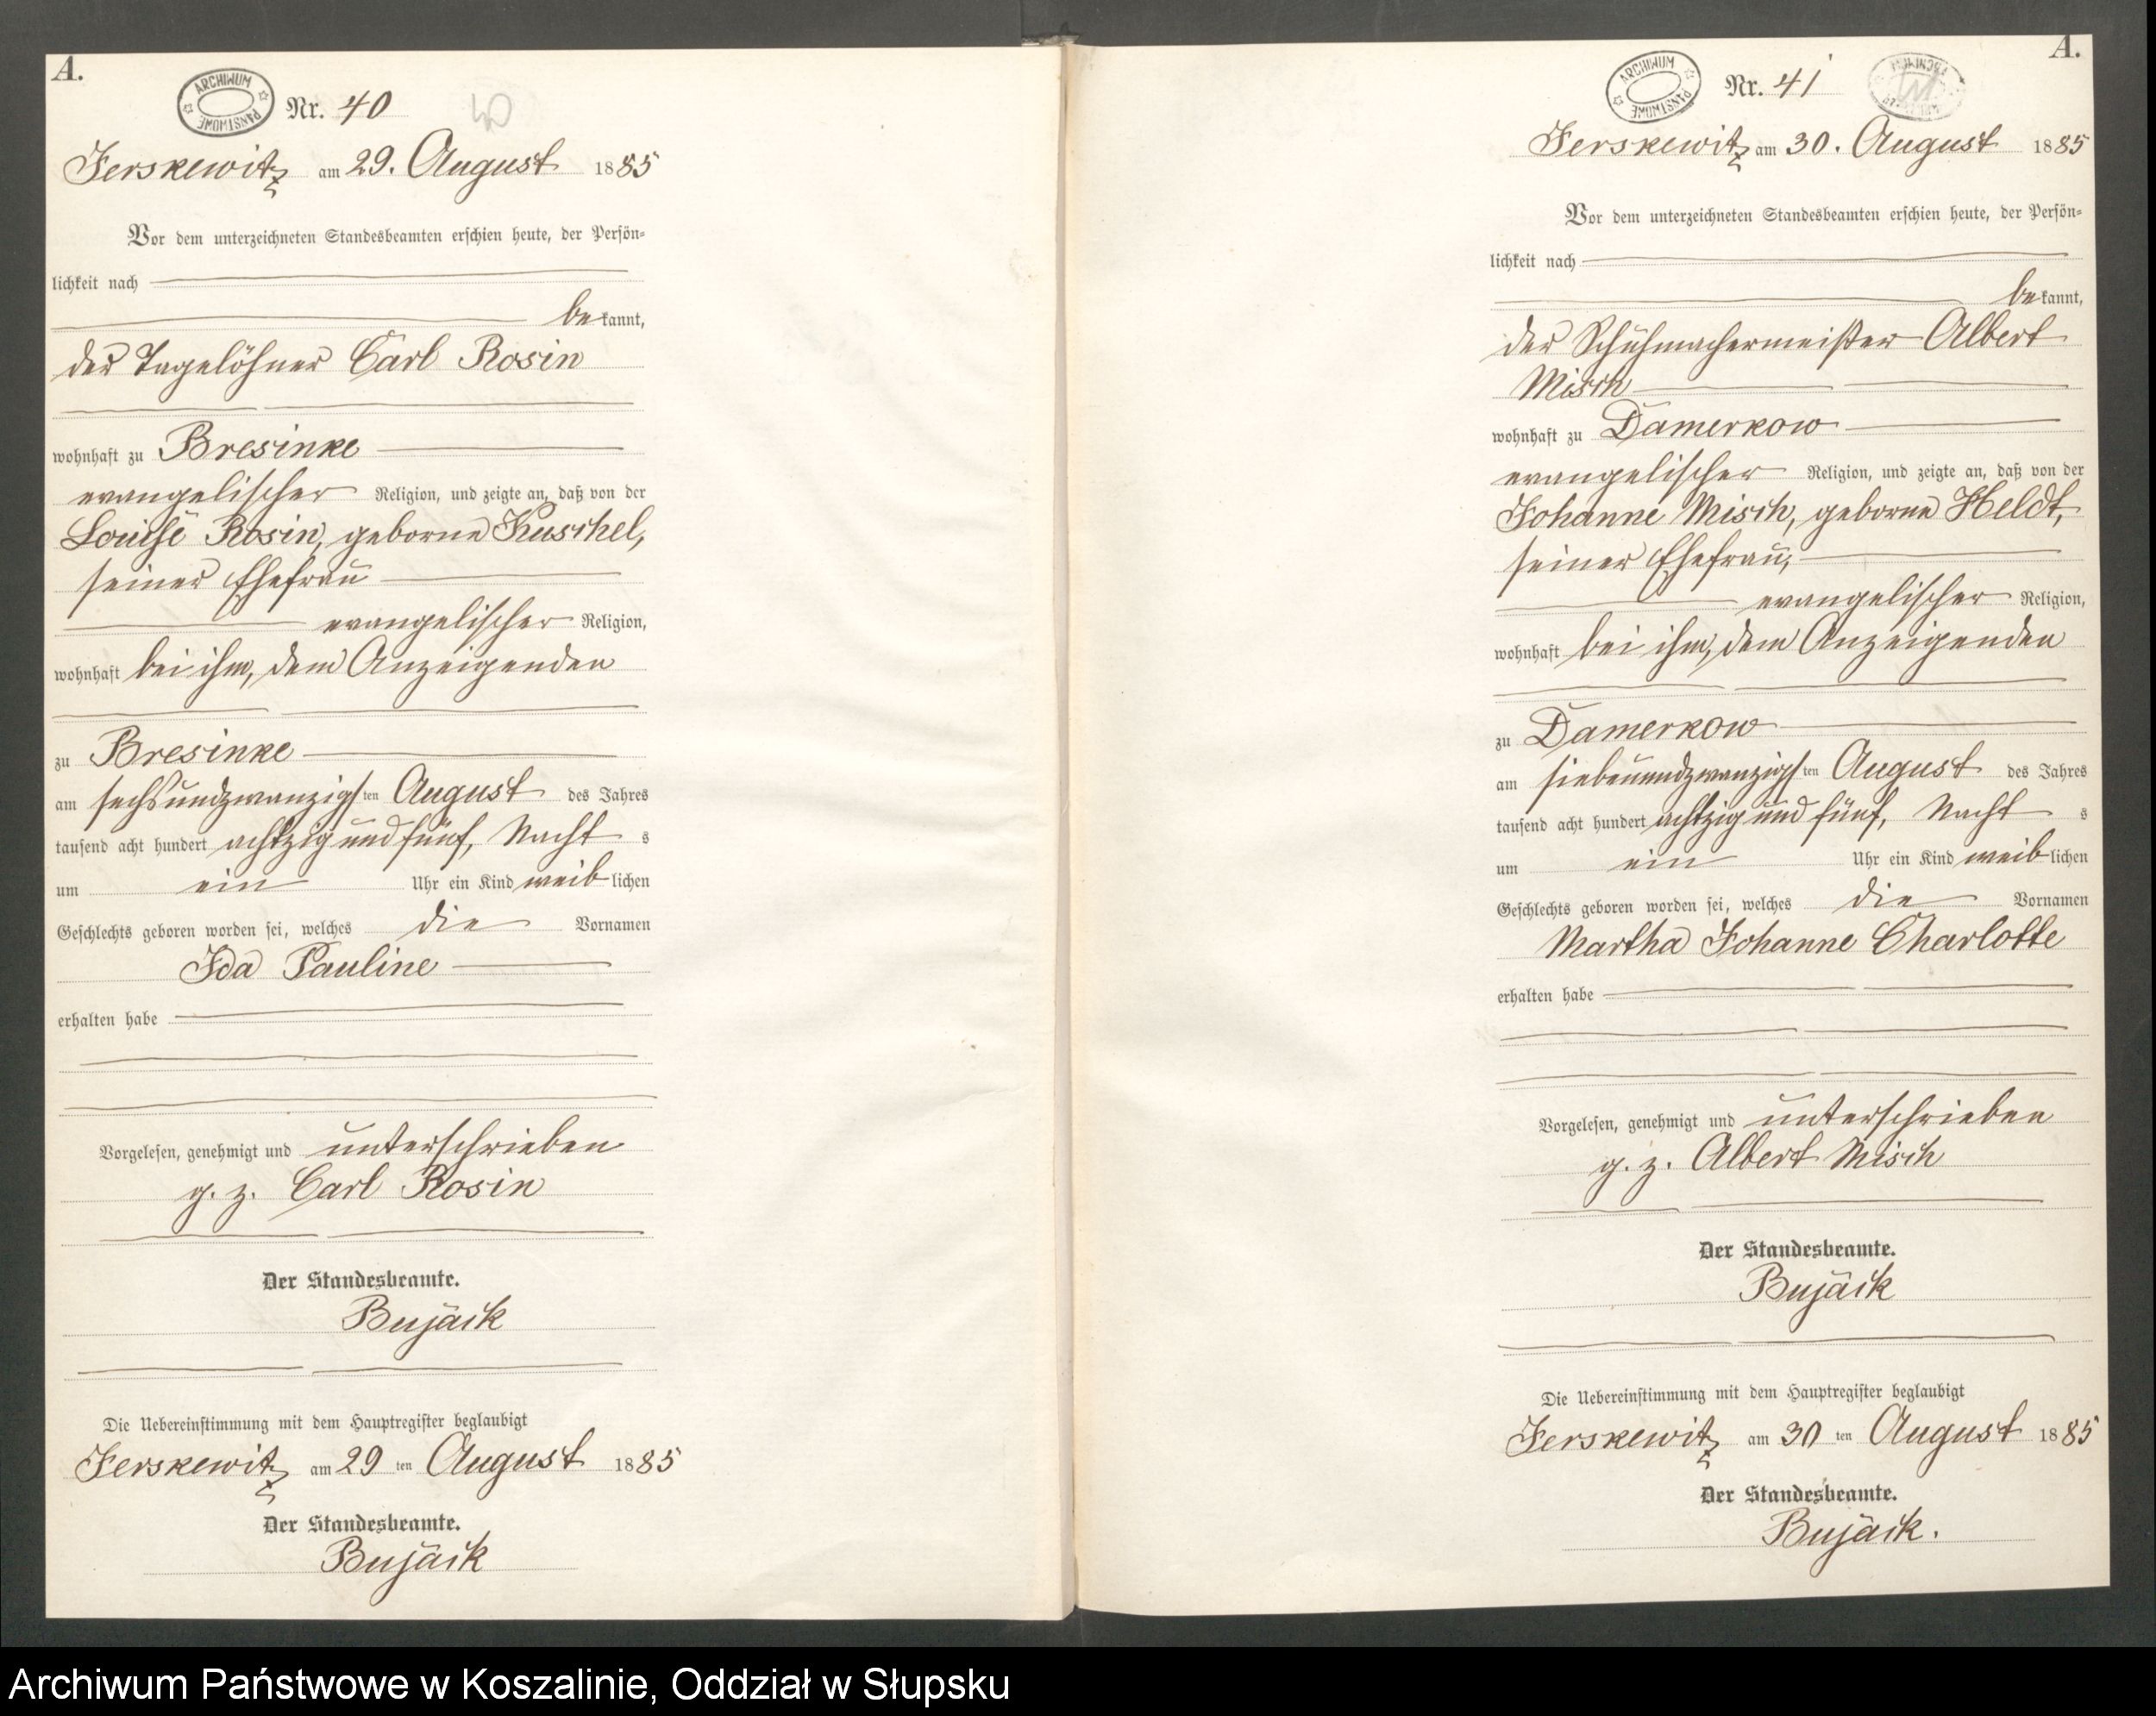 A.
ARCHIWUM PAŃSTWOWE
Nr. 40
40
Jerskewitz am 29. August 1885
Vor dem unterzeichneten Standesbeamten erschien heute, der Persön-
lichkeit nach
bekannt,
der Tagelöhner Carl Rosin
wohnhaft zu Bresinke
evangelischer Religion, und zeigte an, daß von der
Louise Rosin, geborne Kuschel,
seiner Ehefrau
evangelischer Religion,
wohnhaft bei ihm, dem Anzeigenden
zu Bresinke
am sechsundzwanzigsten August des Jahres
tausend acht hundert achtzig und fünf, Nachts
um ein Uhr ein Kind weiblichen
Geschlechts geboren worden sei, welches die Vornamen
Ida Pauline
erhalten habe
Vorgelesen, genehmigt und unterschrieben
g. z. Carl Rosin
Der Standesbeamte.
Bujäck
Die Uebereinstimmung mit dem Hauptregister beglaubigt
Jerskewitz am 29 ten August 1885
Der Standesbeamte.
Bujäck
A.
ARCHIWUM PAŃSTWOWE
Nr. 41
Jerskewitz am 30. August 1885
Vor dem unterzeichneten Standesbeamten erschien heute, der Persön-
lichkeit nach
bekannt,
der Schuhmachermeister Albert
Misch
wohnhaft zu Damerkow
evangelischer Religion, und zeigte an, daß von der
Johanne Misch, geborne Heldt,
seiner Ehefrau,
evangelischer Religion,
wohnhaft bei ihm, dem Anzeigenden
zu Damerkow
am siebenundzwanzigsten August des Jahres
tausend acht hundert achtzig und fünf, Nachts
um ein Uhr ein Kind weiblichen
Geschlechts geboren worden sei, welches die Vornamen
Martha Johanne Charlotte
erhalten habe
Vorgelesen, genehmigt und unterschrieben
g. z. Albert Misch
Der Standesbeamte.
Bujäck
Die Uebereinstimmung mit dem Hauptregister beglaubigt
Jerskewitz am 30 ten August 1885
Der Standesbeamte.
Bujäck.
Archiwum Państwowe w Koszalinie, Oddział w Słupsku